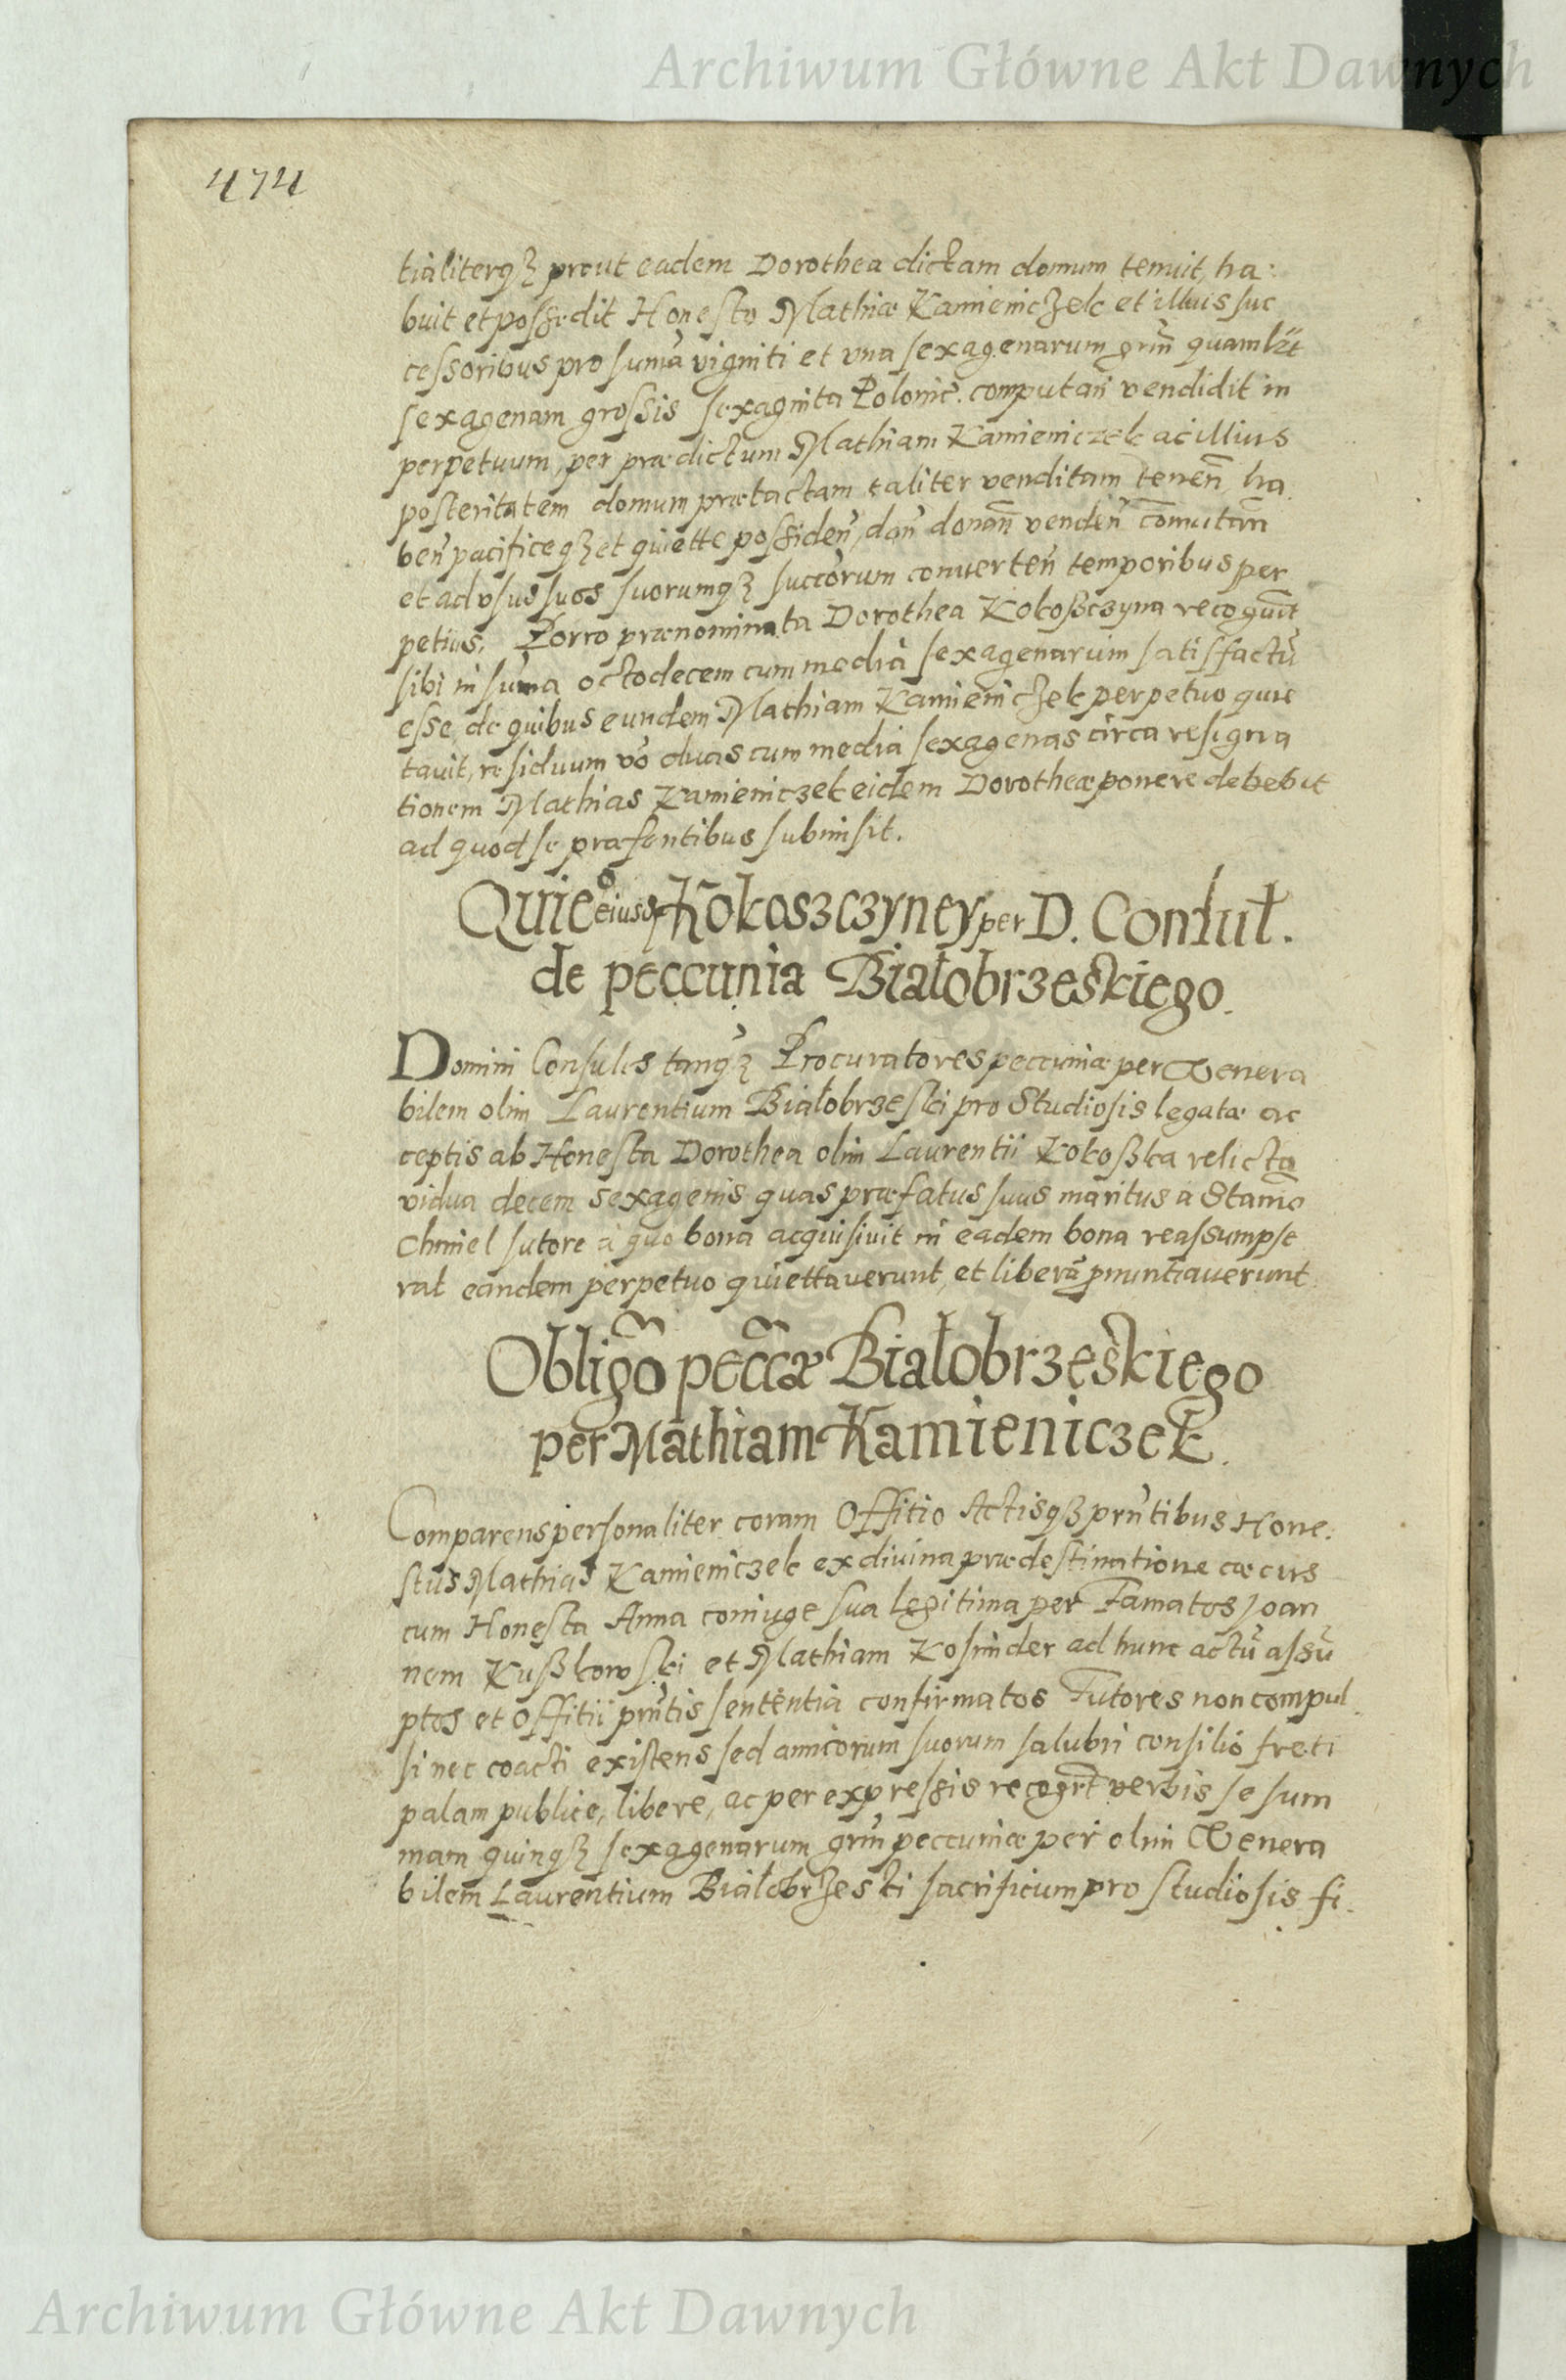 Archiwum Główne Akt Dawnych
474
tialiterqȝ prout eadem Dorothea dictam domum tenuit, ha:
buit et possedit Honesto Mathiæ Kamieniczek et illius suc
cessoribus pro sum̃a viginti et vna sexagenarum grın̄ quamlēt
sexagenam grossis sexaginta Polonic. computan̄ vendidit in
perpetuum, per prædictum Mathiam Kamieniczek ac illius
posteritatem domum prætactam taliter venditam tenen̄ ha
ben̄ pacificeqȝ et quiette possiden̄, dan̄ donan̄ venden̄ com̄utan̄
et ad vsus suos suorumqȝ succorum conuerten̄ temporibus per
petuis. Porro prænominata Dorothea Kokoszczyna recognūit
sibi in sum̃a octodecem cum media sexagenarum satisfactū
esse, de quibus eundem Mathiam Kamieniczek perpetuo quie
tauit, residuum vō duas cum media sexagenas circa resigna
tionem Mathias Kamieniczek eidem Dorotheæ ponere debebit
ad quod se præsentibus submisit.
Quieō eiusd Kokoszczyney per D. Consul.
de peccunia Białobrzeskiego.
Domini Consules tanqȝ Procuratores peccuniæ per Venera
bilem olim Laurentium Białobrzeski pro Studiosis legatæ ac
ceptis ab Honesta Dorothea olim Laurentii Kokoszka relicta
vidua decem sexagenis quas præfatus suus maritus à Stanī̄o
Chmiel sutore à quo bona acquisiuit in eadem bona reassumpse
rat eandem perpetuo quiettauerunt, et liberā p̄nuntiauerunt.
Obligō peccæ Białobrzeskiego
per Mathiam Kamieniczek.
Comparens personaliter coram Offitio Actisqȝ prn̄tibus Hone:
stus Mathias Kamieniczek ex diuina prædestinatione cæcus
cum Honesta Anna coniuge sua legitima per Famatos Joan
nem Kuszkowski et Mathiam Kosinder ad hunc actū assū
ptos et Offitii prn̄tis sententia confirmatos Tutores non compul
si nec coacti existens sed amicorum suorum salubri consilio freti
palam publice, libere, ac per expressis recogrt̄ verbis se sum
mam quinqȝ sexagenarum grın̄ peccuniæ per olim Venera
bilem Laurentium Białobrzeski sacrificum pro studiosis fi.
Archiwum Główne Akt Dawnych